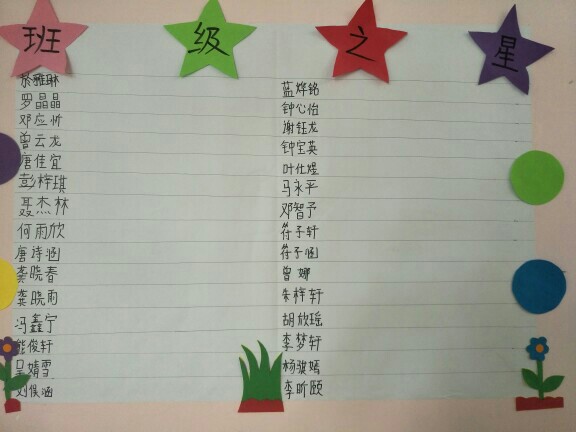 班级之星
罗晶晶
邓应忻
曾云龙
唐佳宜
彭梓琪
聂杰林
何雨欣
唐诗涵
龚晓春
龚晓雨
冯鑫宁
熊俊轩
吴婧雪
刘俣涵
蓝烨铭
钟心怡
谢钰龙
钟宝英
叶仕煜
马永平
邓智予
符子轩
符子涵
曾娜
朱梓轩
胡放瑶
李梦轩
杨骐嫣
李昕颐